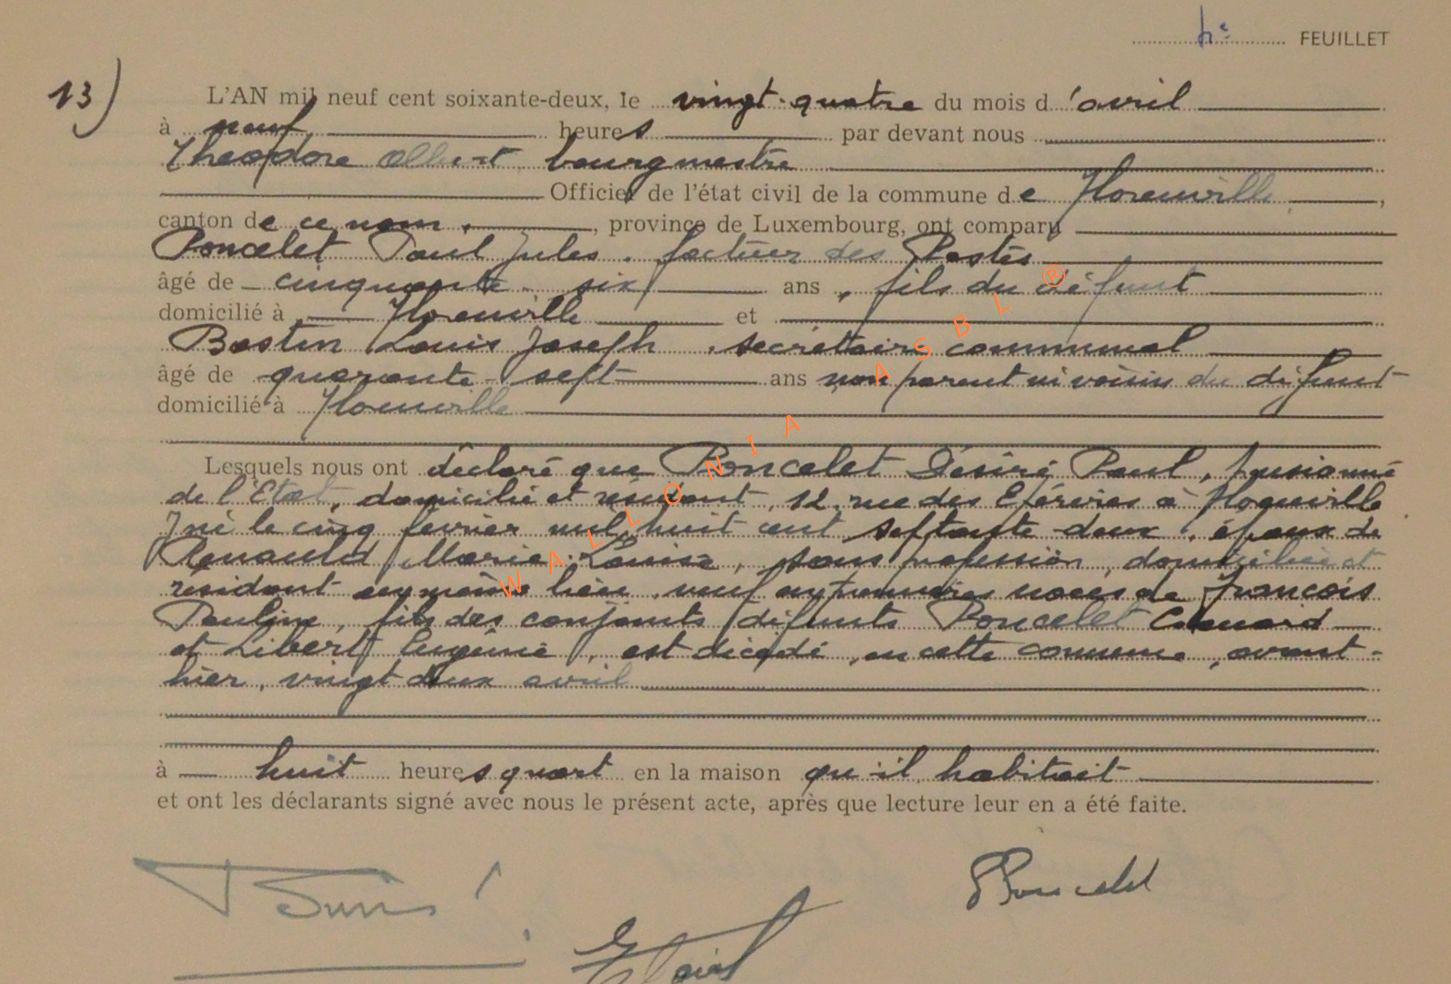 4e FEUILLET
13)
L'AN mil neuf cent soixante-deux, le vingt-quatre du mois d'avril
à neuf heures par devant nous
Théodore Albert bourgmestre
Officier de l'état civil de la commune de Florenville,
canton de ce nom, province de Luxembourg, ont comparu
Poncelet Paul Jules, facteur des Postes
âgé de cinquante-six ans, fils du défunt
domicilié à Florenville et
Bastin Louis Joseph, secrétaire communal
âgé de quarante-sept ans non parent ni voisin du défunt
domicilié à Florenville
Lesquels nous ont déclaré que Poncelet Désiré Paul, pensionné
de l'Etat, domicilié et résidant, 12, rue des Epérires à Florenville
né le cinq février mil huit cent septante-deux, époux de
Renauld Marie-Louise, sans profession, domiciliée et
résidant au même lieu, veuf en premières noces de François
Pauline, fils des conjoints défunts Poncelet
et Libert Eugénie, est décédé, en cette commune, avant-
hier, vingt deux avril
à huit heures quart en la maison qu'il habitait
et ont les déclarants signé avec nous le présent acte, après que lecture leur en a été faite.
Poncelet
WALLONIA ASBL ®